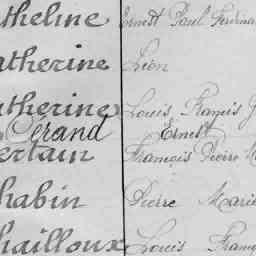 theline Ernest Paul Ferdina
atherine Léon
atherine Louis François J
Gérand Ernest
ertain François Pierre M
habin Pierre Marie
hailloux Louis Franç